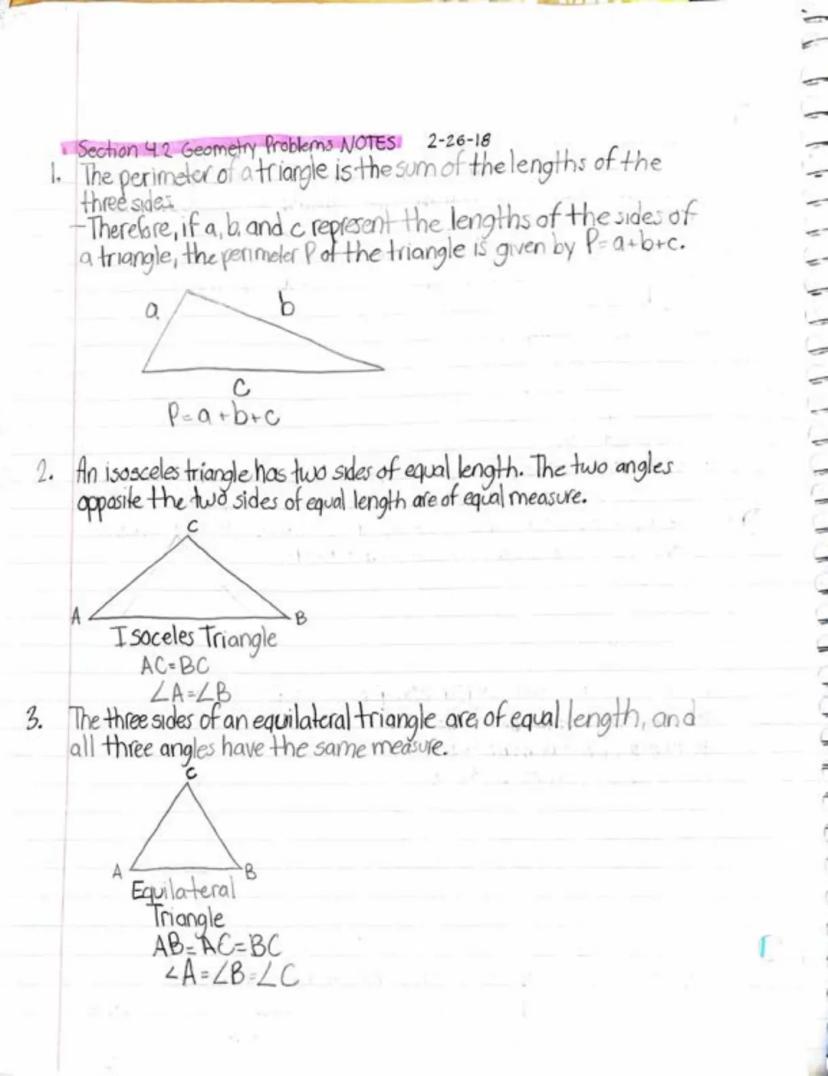 Section 4.2 Geometry Problems NOTES 2-26-18
1. The perimeter of a triangle is the sum of the lengths of the
three sides.
-Therefore, if a, b, and c represent the lengths of the sides of
a triangle, the perimeter P of the triangle is given by P=a+b+c.
a b
c
P=a+b+c
2. An isosceles triangle has two sides of equal length. The two angles
opposite the two sides of equal length are of equal measure.
C
A B
Isoceles Triangle
AC=BC
∠A=∠B
3. The three sides of an equilateral triangle are of equal length, and
all three angles have the same measure.
C
A B
Equilateral
Triangle
AB=AC=BC
∠A=∠B=∠C